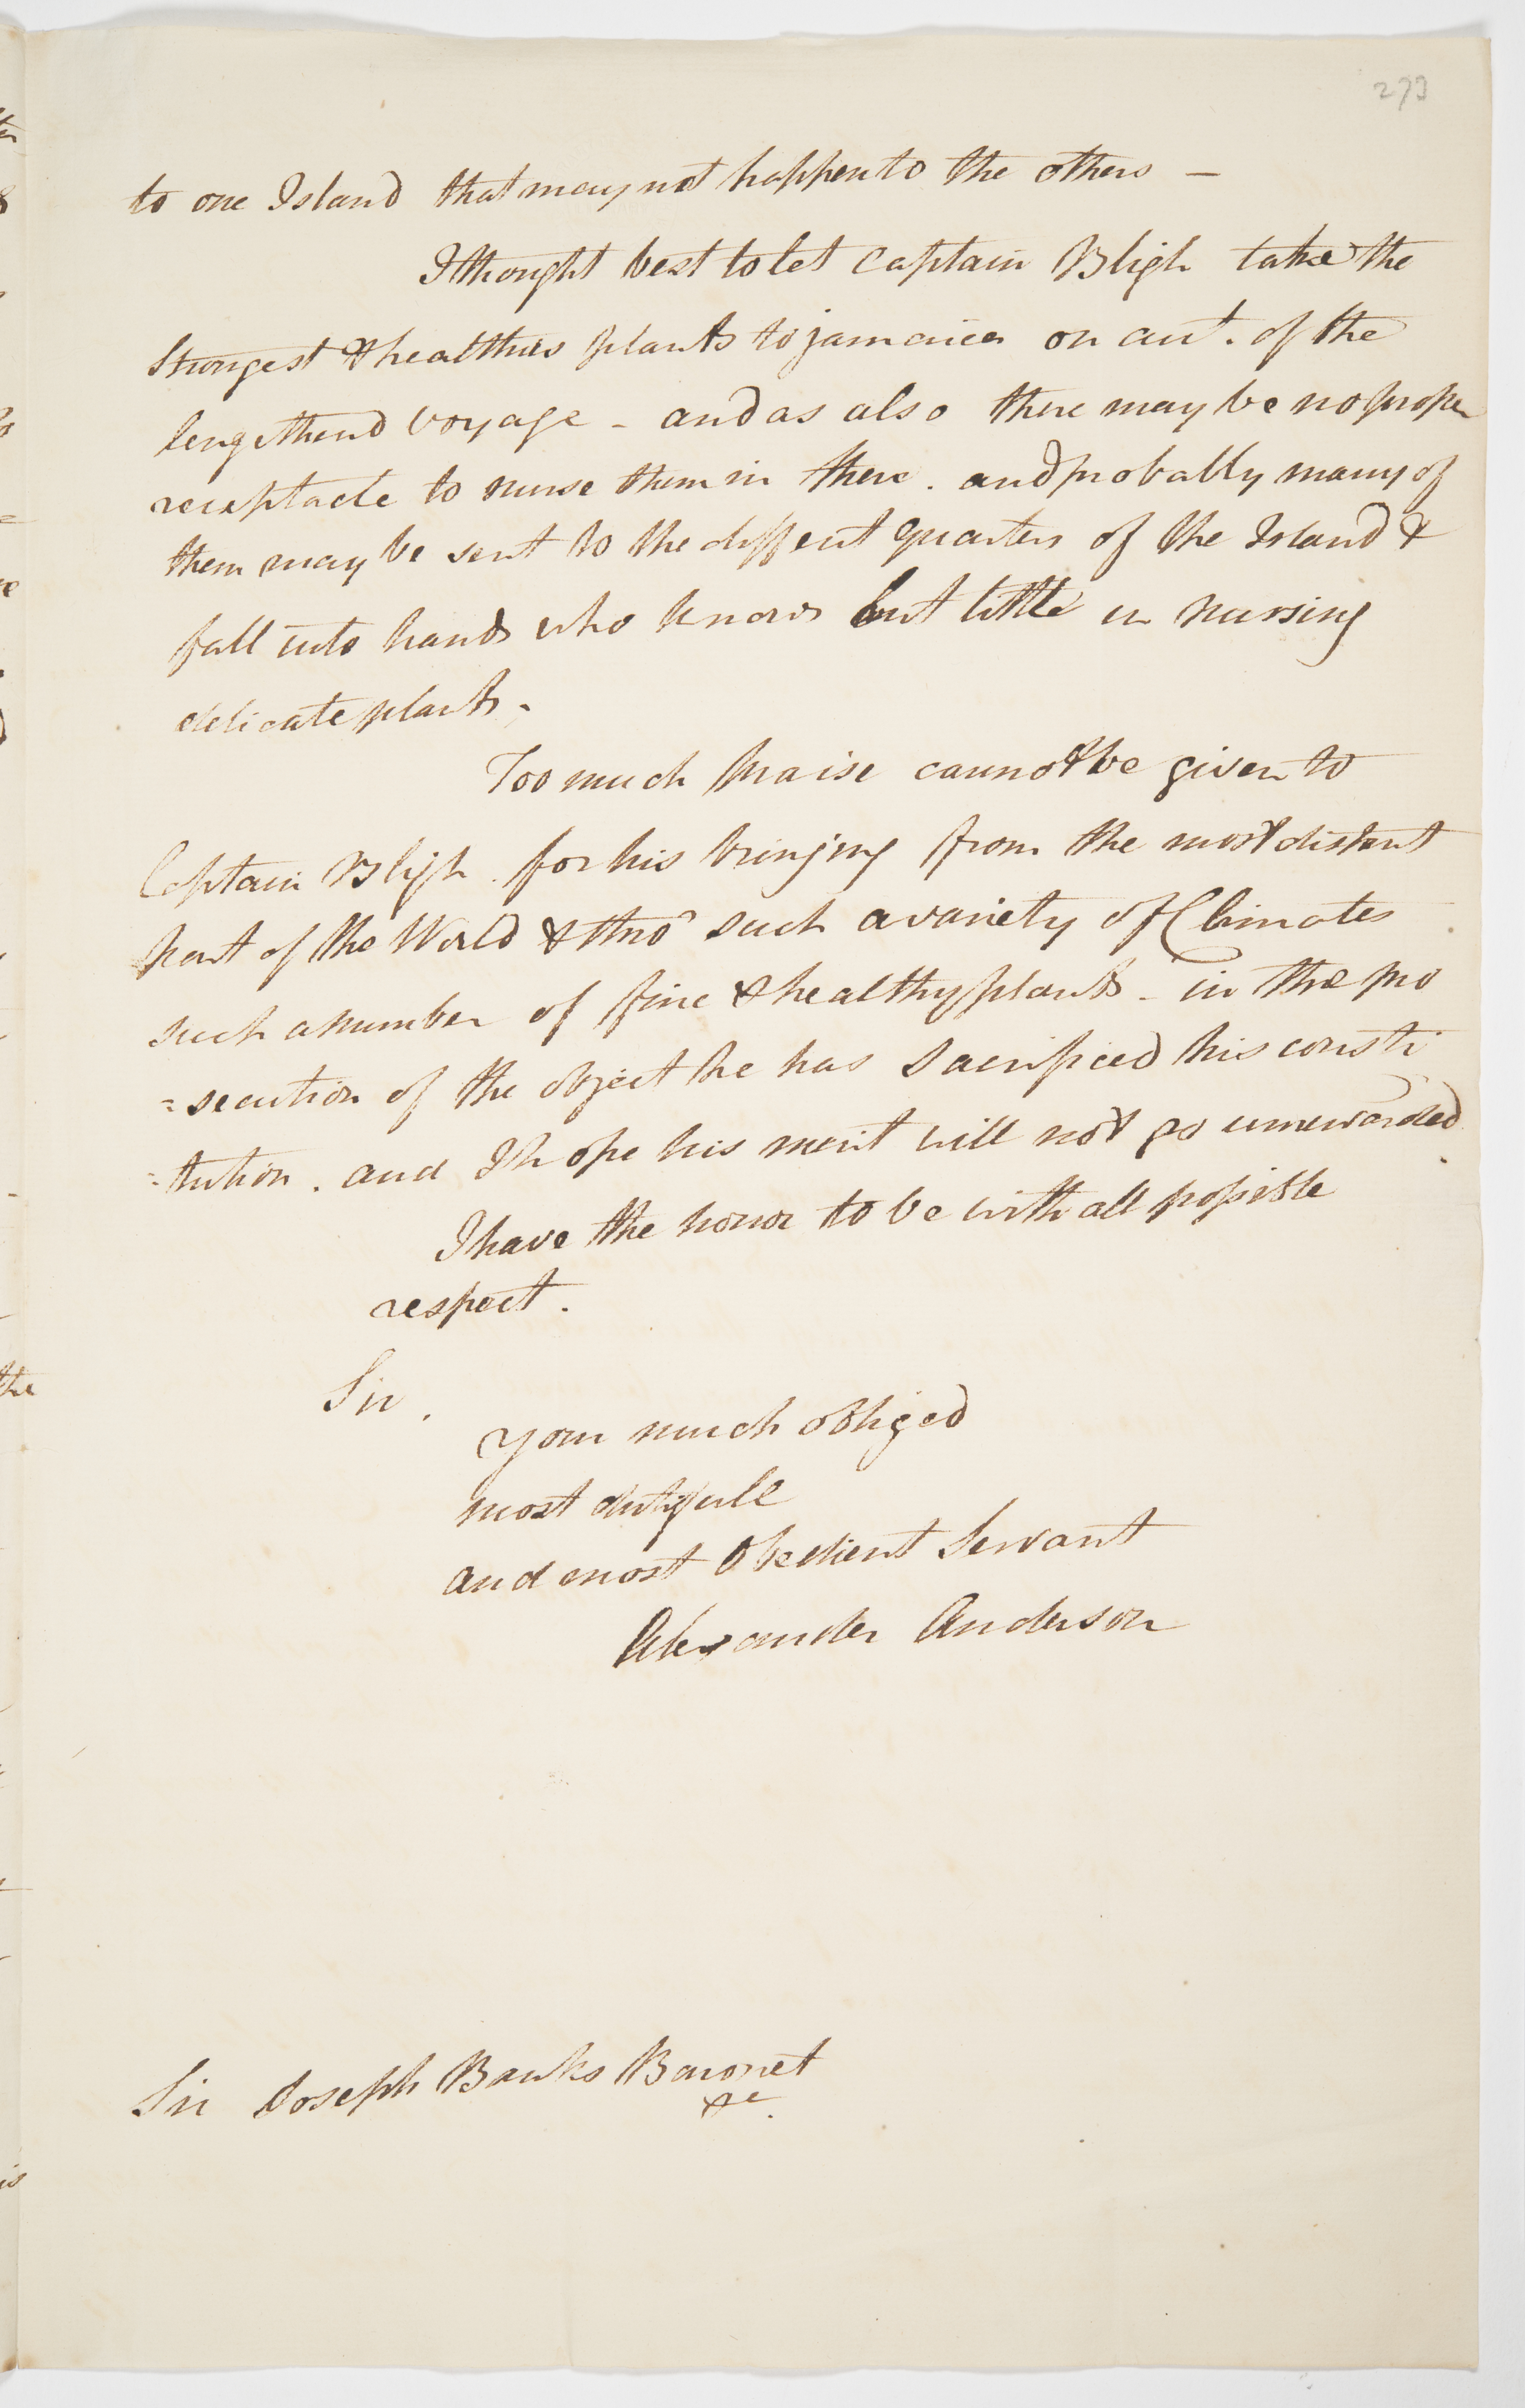 293
to one Island that may not happen to the others —
I thought best to let Captain Bligh take the
Strongest & healthies plants to jamaica on acct. of the
lengethend voyage - and as also there may be no proper
receptacle to nurse them in there. and probably many of
them may be sent to the diffent quarters of the Island &
fall into hands who knows but little in nursing
delicate plants.
Too much praise cannot be given to
Captain Bligh for his bringing from the most distant
part of the World & thro' such a variety of Climates
such a number of fine & healthy plants - in the pro
=secution of the object he has sacrificed his consti
=tution. and I hope his merit will not go unrewarded.
I have the honor to be with all possible
respect.
Sir.
your much obliged
most dutifull
and most Obedient Servant
Alexander Anderson
Sir Joseph Banks Baronet
&c.